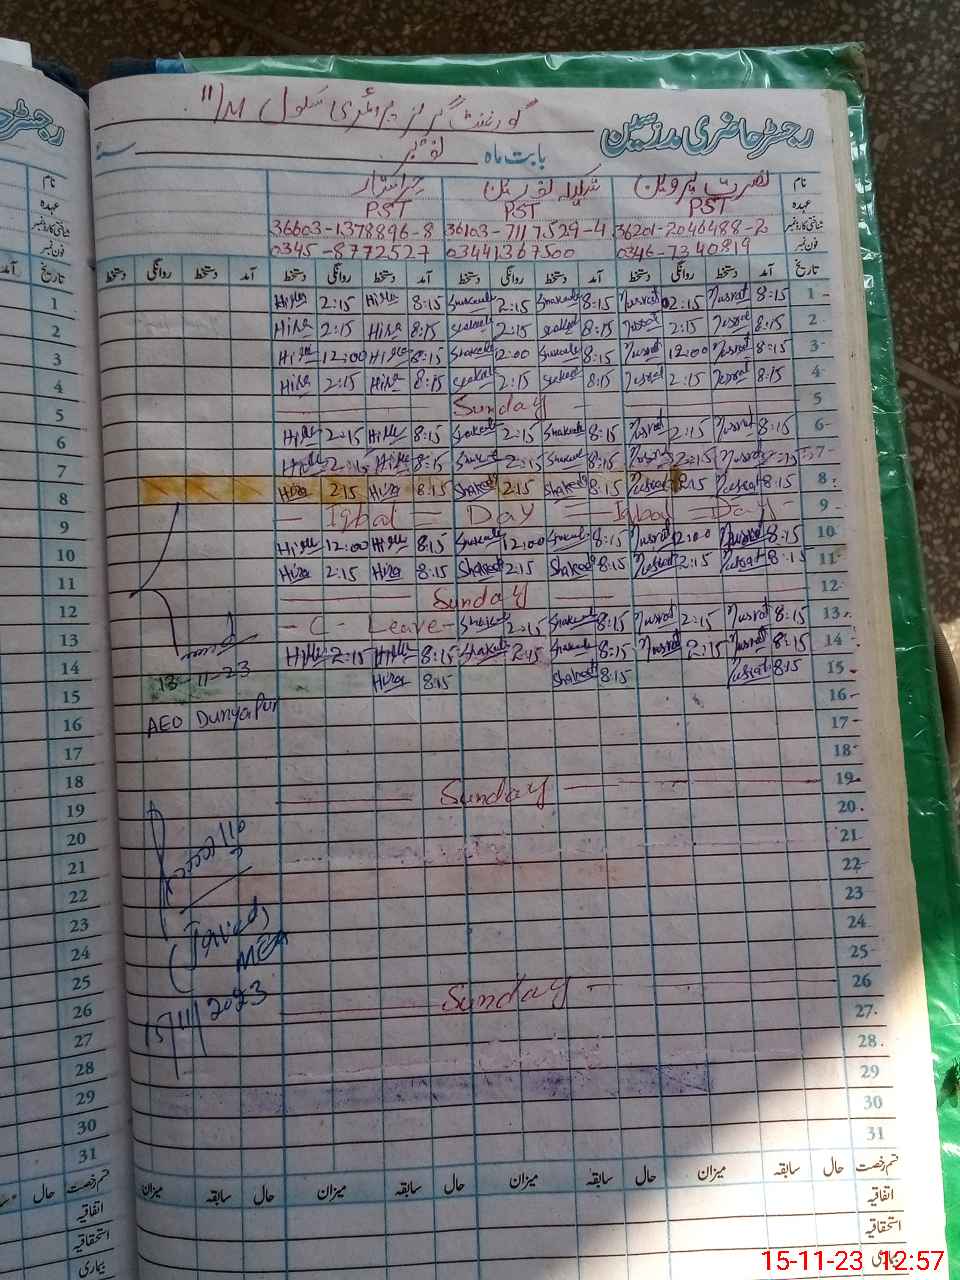 گورنمنٹ گرلز پرائمری سکول 11/M
رجسٹر حاضری مدرسین
بابت ماہ نومبر سنہ
نام نصرت پروین شکیلہ نسرین حرا ستار
عہدہ PST PST PST
شناختی کارڈ نمبر 36201-2046488-2 36103-7117529-4 36603-1378896-8
فون نمبر 0346-7240819 03441367500 0345-8772527
تاریخ آمد دستخط روانگی دستخط آمد دستخط روانگی دستخط آمد دستخط روانگی دستخط آمد دستخط روانگی دستخط
1 8:15 Nusrat 2:15 Nusrat 8:15 Shakeela 2:15 Shakeela 8:15 Hira 2:15 Hira
2 8:15 Nusrat 2:15 Nusrat 8:15 Shakeela 2:15 Shakeela 8:15 Hira 2:15 Hira
3 8:15 Nusrat 12:00 Nusrat 8:15 Shakeela 12:00 Shakeela 8:15 Hira 12:00 Hira
4 8:15 Nusrat 2:15 Nusrat 8:15 Shakeela 2:15 Shakeela 8:15 Hira 2:15 Hira
5 Sunday
6 8:15 Nusrat 2:15 Nusrat 8:15 Shakeela 2:15 Shakeela 8:15 Hira 2:15 Hira
7 Nusrat 2:15 Nusrat 8:15 Shakeela 2:15 Shakeela 8:15 Hira 2:15 Hira
8 8:15 Nusrat 2:15 Nusrat 8:15 Shakeela 2:15 Shakeela 8:15 Hira 2:15 Hira
9 Iqbal Day Iqbal Day
10 8:15 Nusrat 12:00 Nusrat 8:15 Shakeela 12:00 Shakeela 8:15 Hira 12:00 Hira
11 8:15 Nusrat 2:15 Nusrat 8:15 Shakeela 2:15 Shakeela 8:15 Hira 2:15 Hira
12 Sunday
13 8:15 Nusrat 2:15 Nusrat 8:15 Shakeela 2:15 Shakeela C-Leave
14 8:15 Nusrat 2:15 Nusrat 8:15 Shakeela 2:15 Shakeela 8:15 Hira 2:15 Hira
15 8:15 Nusrat 8:15 Shakeela 8:15 Hira
13-11-23
AEO Dunyapur
16
17
18
19 Sunday
20
21
22
23
24
25
26 Sunday
27
28
29
30
31
(Javed)
MEA
15/11/2023
قسم رخصت حال سابقہ میزان حال سابقہ میزان حال سابقہ میزان حال سابقہ میزان
اتفاقیہ
استحقاقیہ
بیماری
آمد تاریخ
1
2
3
4
5
6
7
8
9
10
11
12
13
14
15
16
17
18
19
20
21
22
23
24
25
26
27
28
29
30
31
حال قسم رخصت
اتفاقیہ
استحقاقیہ
بیماری
15-11-23 12:57